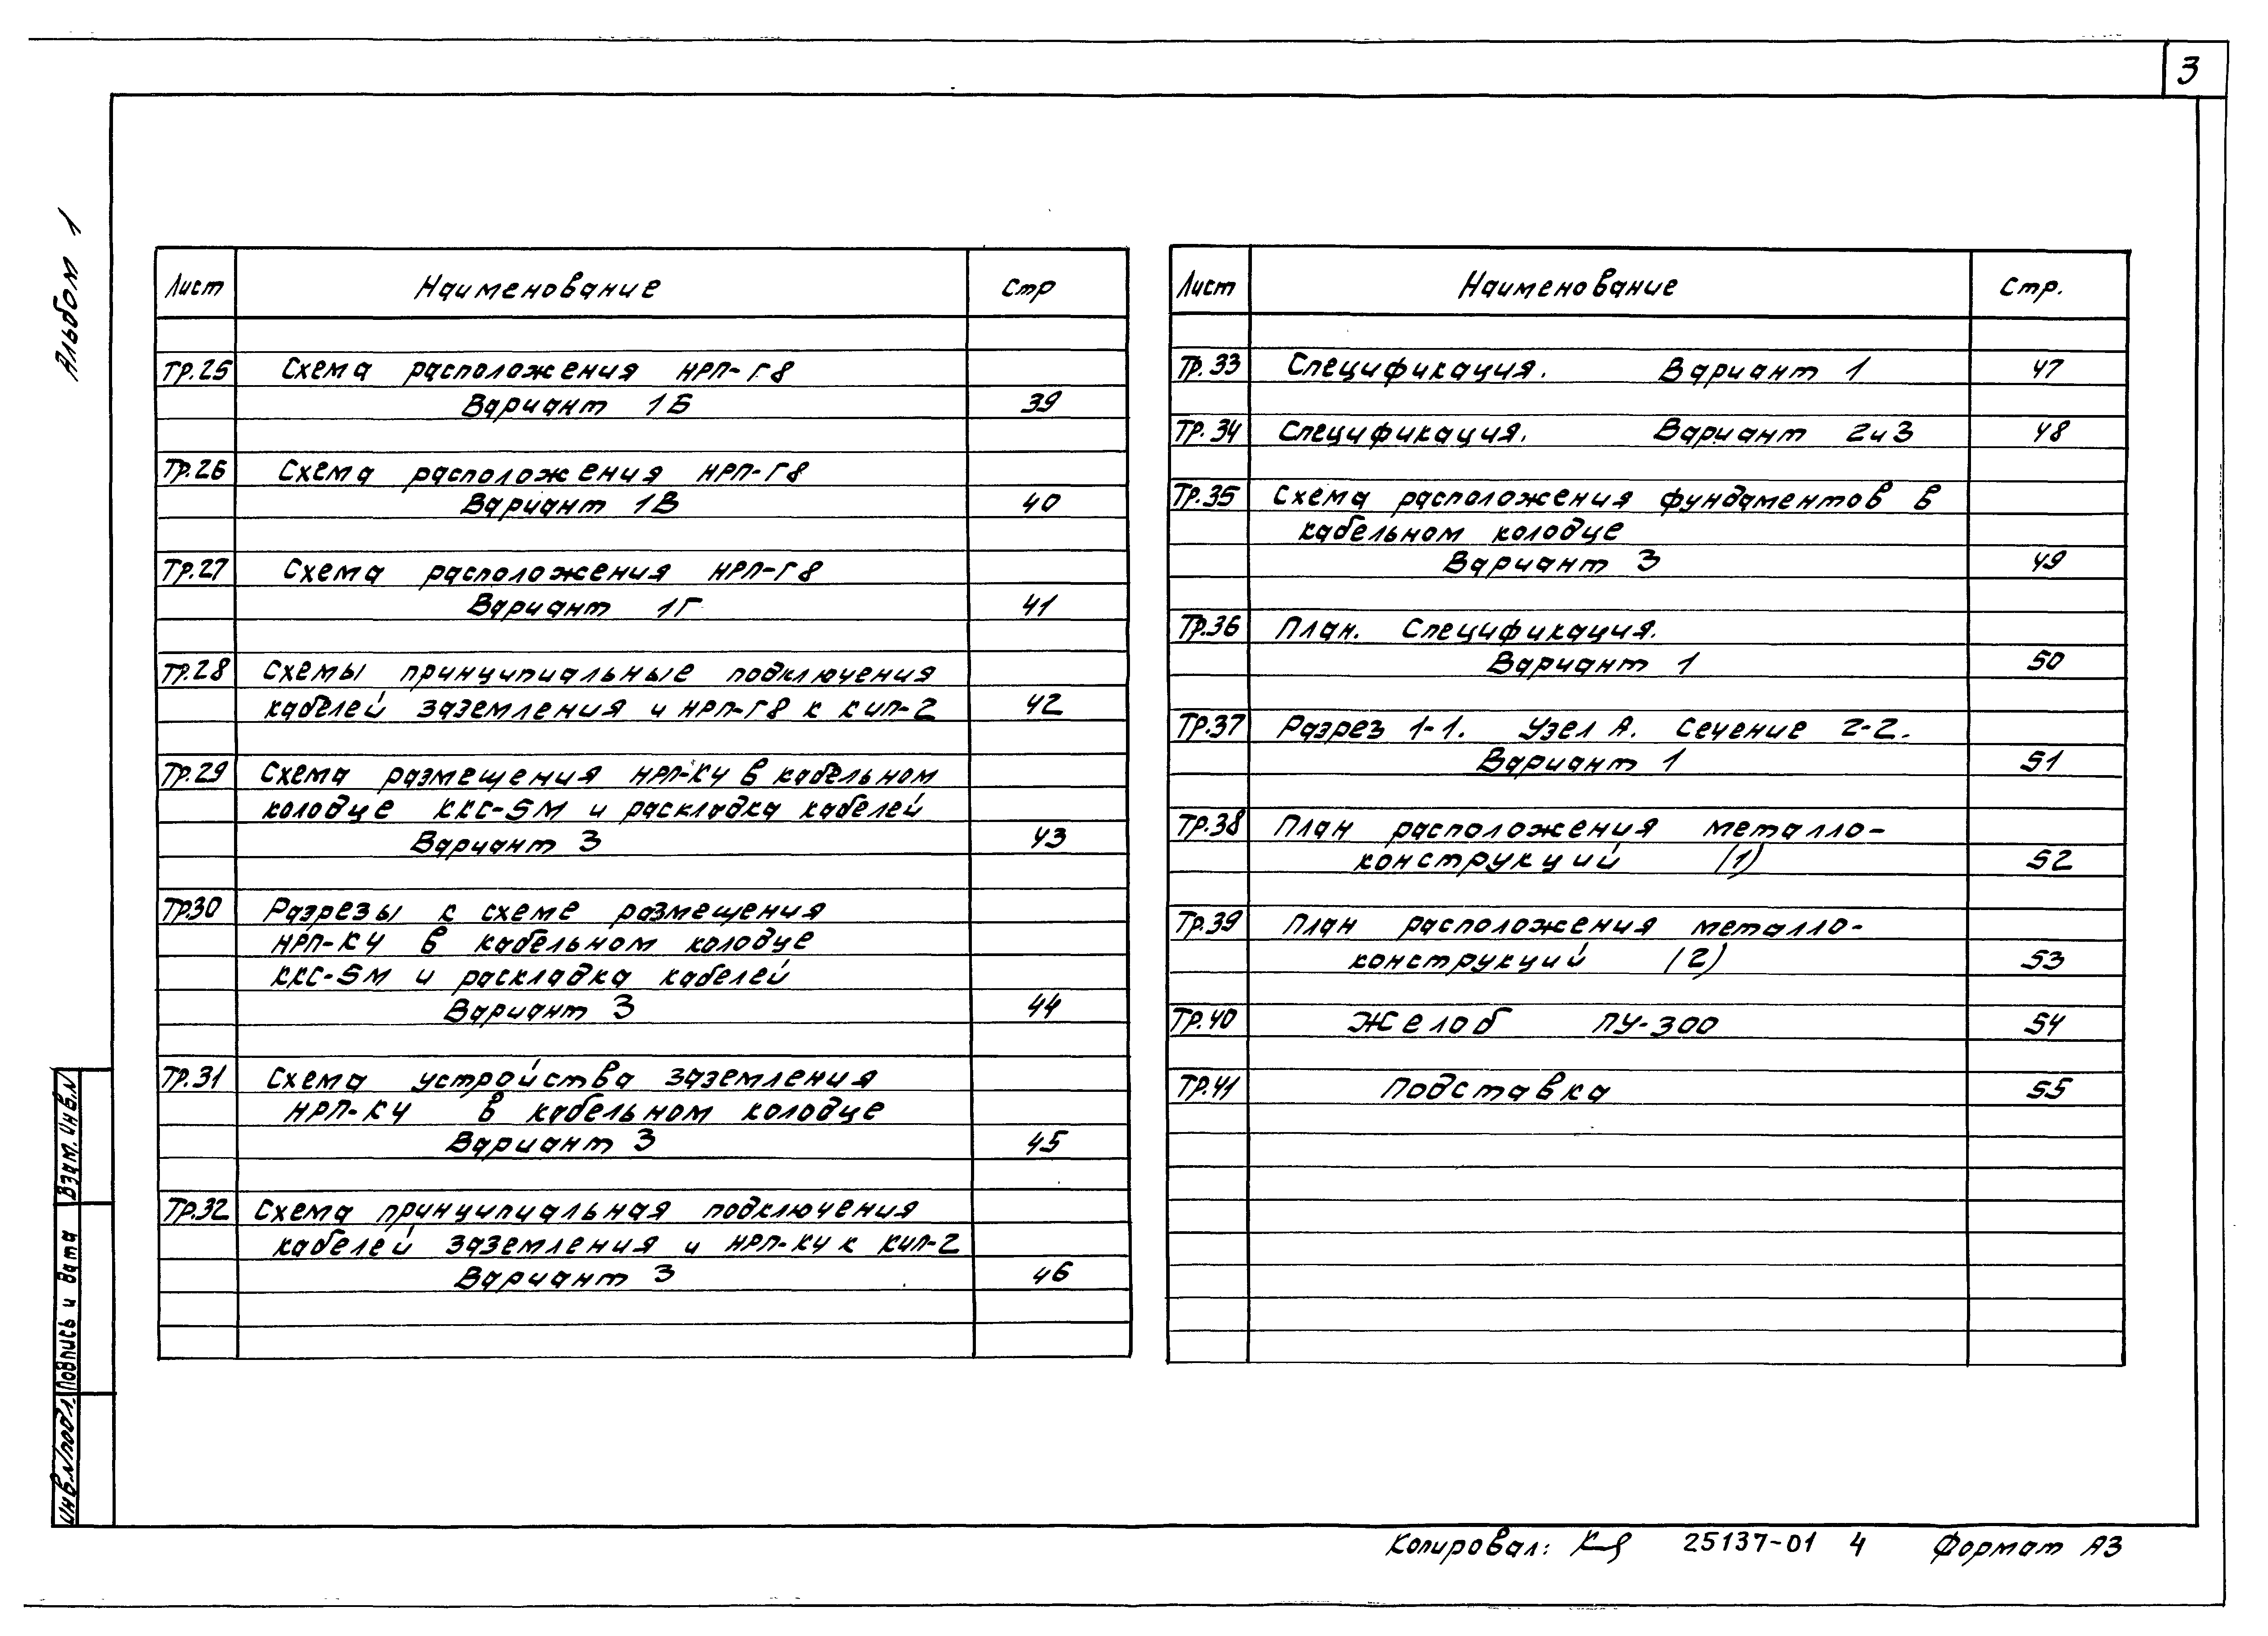 3
Альбом 1
Лист Наименование Стр
ТР.25 Схема расположения НРП-Г8
Вариант 1Б 39
ТР.26 Схема расположения НРП-Г8
Вариант 1В 40
ТР.27 Схема расположения НРП-Г8
Вариант 1Г 41
ТР.28 Схемы принципиальные подключения
кабелей заземления и НРП-Г8 к КИП-2 42
ТР.29 Схема размещения НРП-К4 в кабельном
колодце ККС-5М и раскладка кабелей
Вариант 3 43
ТР.30 Разрезы к схеме размещения
НРП-К4 в кабельном колодце
ККС-5М и раскладка кабелей
Вариант 3 44
ТР.31 Схема устройства заземления
НРП-К4 в кабельном колодце
Вариант 3 45
ТР.32 Схема принципиальная подключения
кабелей заземления и НРП-К4 к КИП-2
Вариант 3 46
Лист Наименование Стр.
ТР.33 Спецификация. Вариант 1 47
ТР.34 Спецификация. Вариант 2и3 48
ТР.35 Схема расположения фундаментов в
кабельном колодце
Вариант 3 49
ТР.36 План. Спецификация.
Вариант 1 50
ТР.37 Разрез 1-1. Узел А. Сечение 2-2.
Вариант 1 51
ТР.38 План расположения металло-
конструкций (1) 52
ТР.39 План расположения металло-
конструкций (2) 53
ТР.40 Желоб ЛУ-300 54
ТР.41 Подставка 55
Взам. инв.N
Подпись и дата
Инв.N подл.
Копировал: 25137-01 4 Формат А3